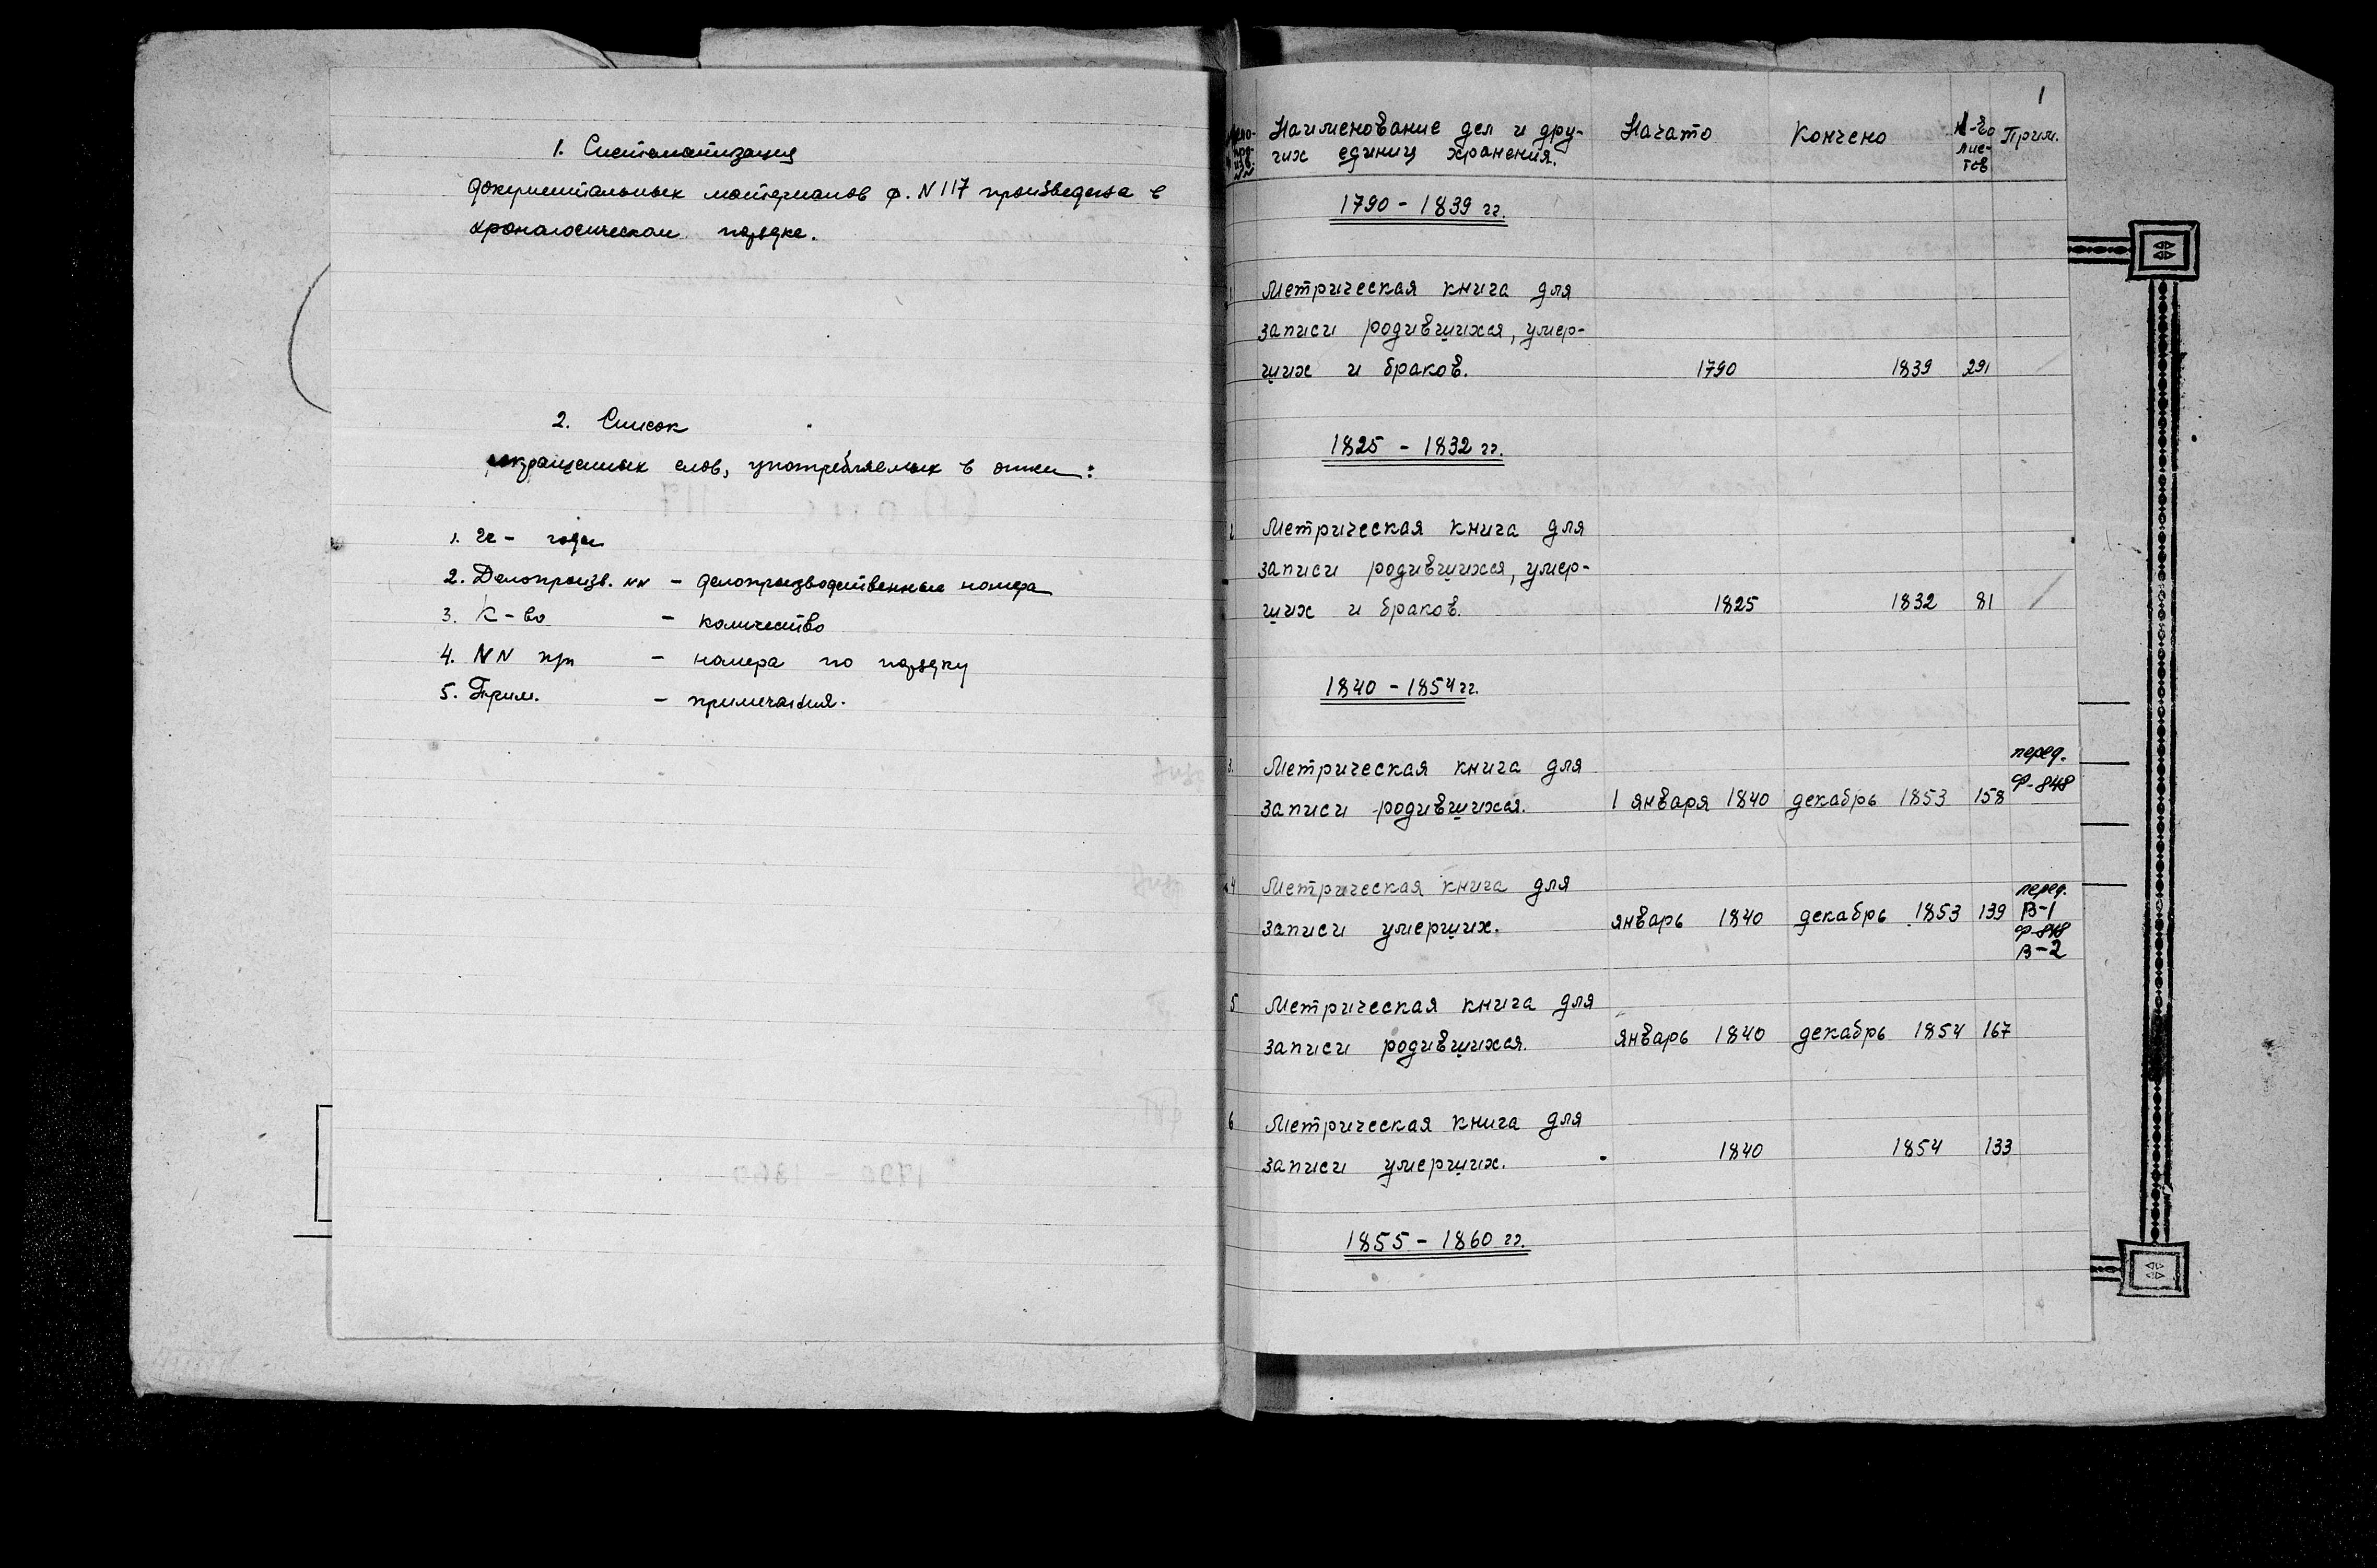 1. Систематизация
документальных материалов ф. N 117 произведена в
хронологическом порядке.
2. Список
сокращенных слов, употребляемых в описи:
1. гг - годы
2. Делопроизв. NN - делопроизводственные номера
3. К-во - количество
4. NN пп - номера по порядку
5. Прим. - примечания.
1
Наименование дел и дру-
гих единиц хранения.
Начато
Кончено
К-во
лис-
тов
Прим.
1790 - 1839 гг.
1 Метрическая книга для
записи родившихся, умер-
ших и браков. 1790 1839 291
1825 - 1832 гг.
2 Метрическая книга для
записи родившихся, умер-
ших и браков. 1825 1832 81
1840 - 1854 гг.
3. Метрическая книга для
записи родившихся. 1 января 1840 декабрь 1853 158
перед.
Ф-848
4 Метрическая книга для
записи умерших. январь 1840 декабрь 1853 139
перед.
В-1
Ф-848
В-2
5 Метрическая книга для
записи родившихся. январь 1840 декабрь 1854 167
6 Метрическая книга для
записи умерших. 1840 1854 133
1855 - 1860 гг.